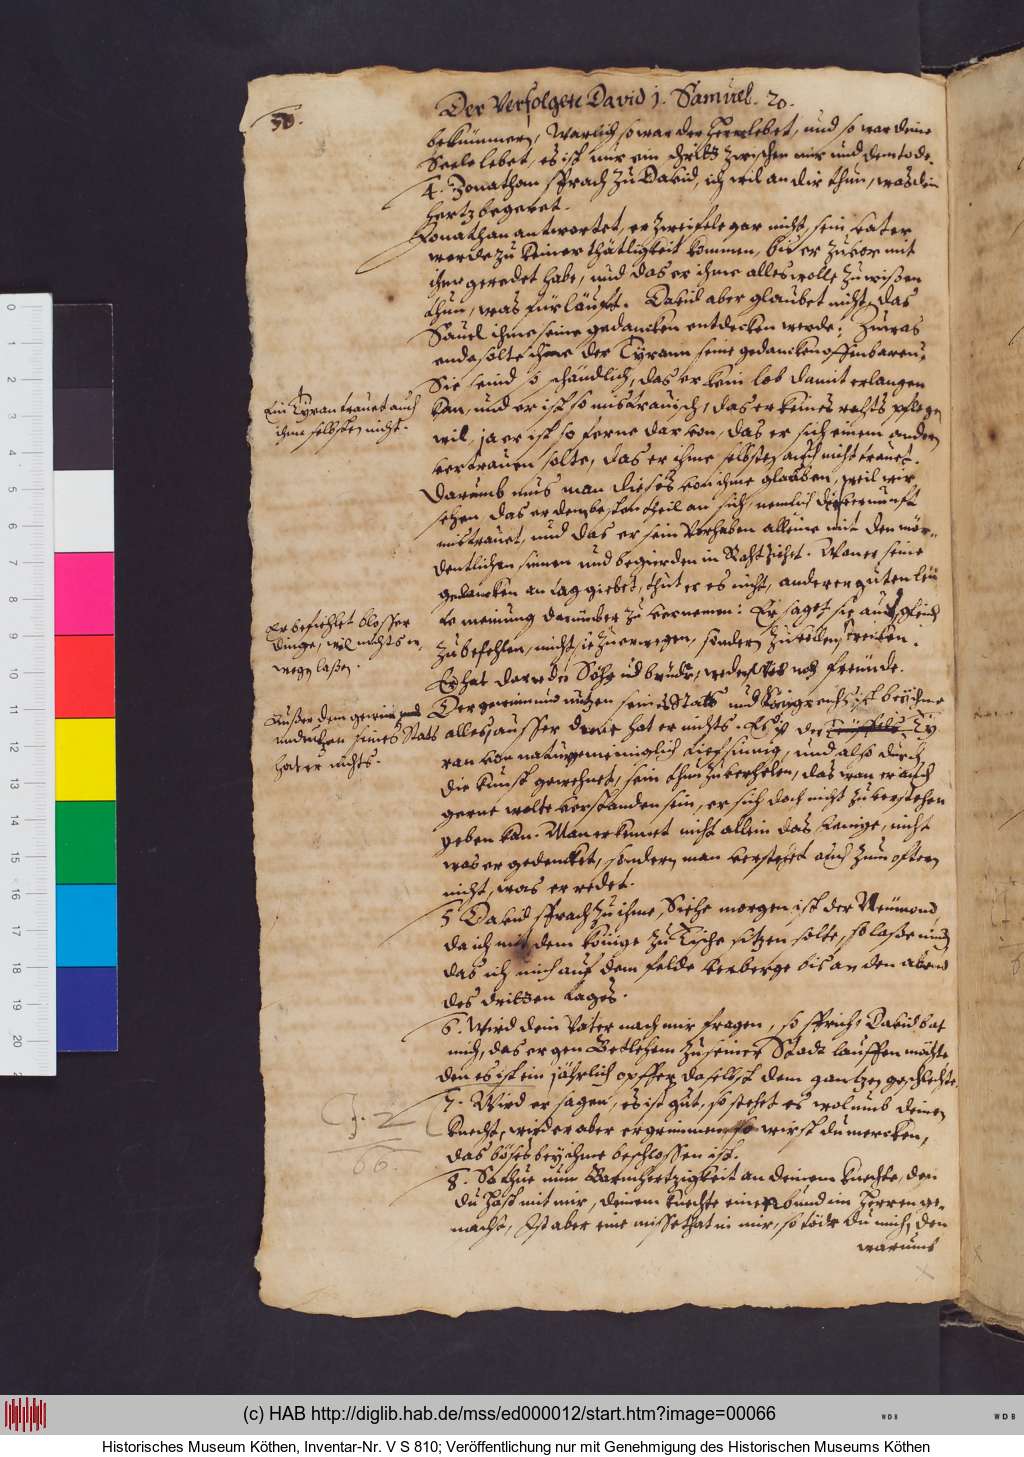 50.
Der Verfolgete David 1. Samuel. 20.
bekümmern, Warlich so war der Herr lebet, und so war deine
Seele lebet, es ist nur ein schritt zwischen mir und dem tode.
4. Jonathan sprach zu David, ich wil an dir thun, was dein
hertz begeret.
Jonathan antwortet, er zweifele gar nicht, sein vater
werde zu keiner thätligkeit kommen, bis er zuvor mit
ihme geredet habe, und das er ihme alles wolle zuwißen
thun, was fürläuft. David aber glaubet nicht, das
Saul ihme seine gedancken entdecken werde: Zu was
ende solte ihme der Tyrann seine gedancken offenbaren?
Sie seind so schändlich, das er kein lob damit erlangen
kan, und er ist so mistrauisch, das er keines rahts pflegen
wil, ja er ist so ferne darvon, das er sich einem andern
vertrauen solte, das er ihme selbsten auch nicht trauet.
Ein Tyran trauet auch
ihme selbsten nicht.
Darumb mus man dieses von ihme glauben, weil wir
sehen, das er dem besten theil an sich, nemlich der vernunft
mistrauet, und das er sein Vorhaben alleine mit den
sinnen und begierden in Raht ziehet. Wan er seine
gedancken an tag giebet, thut er es nicht, anderer guten leu
te meinung darüber zu vernemen: Er saget sie auch gleich
zu befehlen, nicht sie zuerwegen, sondern zuvollenstrecken.
Er befiehlet blosser
dinge, wil nichts er
wegen laßen.
Er hat weder Söhne noch brüder, weder noch freünde.
Der gemein nutzen seines Stats und Königreichs ist bey ihme
alles, ausser deme hat er nichts. Es ist der Ty
ran von natur gemeiniglich tiefsinnig, und also durch
die kunst gewehnet, sein thun zuverhelen, das wan er auch
gerne wolte verstanden sein, er sich doch nicht zuverstehen
geben kan. Man erkennet nicht allein das jenige, nicht
was er gedencket, sondern man verstehet auch zum oftern
nicht, was er redet.
Außer dem gewin und
nutzen seines Stats
hat er nichts.
5. David sprach zu ihme, Siehe morgen ist der Neümond,
da ich mit dem könige zu Tische sitzen solte, so laße mich
das ich mich auf dem felde verberge bis an den abend
des dritten tages.
6. Wird dein Vater nach mir fragen, so sprich, David bat
mich, das er gen Betlehem zu seiner Stadt lauffen möchte
den es ist ein jährlich opffer daselbst dem gantzen geschlechte.
7. Wird er sagen, es ist gut, so stehet es wol umb deinen
knecht, wird er aber ergrimmen so wirst du mercken,
das böses bey ihme beschlossen ist.
8. So thue nun Barmhertzigkeit an deinem knechte, den
du hast mit mir, deinem knechte einen bund im Herren ge-
macht, Ist aber eine missethat in mir, so tödte du mich, den
warumb
J. 2
66.
(c) HAB http://diglib.hab.de/mss/ed000012/start.htm?image=00066
WDB
WDB
Historisches Museum Köthen, Inventar-Nr. V S 810; Veröffentlichung nur mit Genehmigung des Historischen Museums Köthen